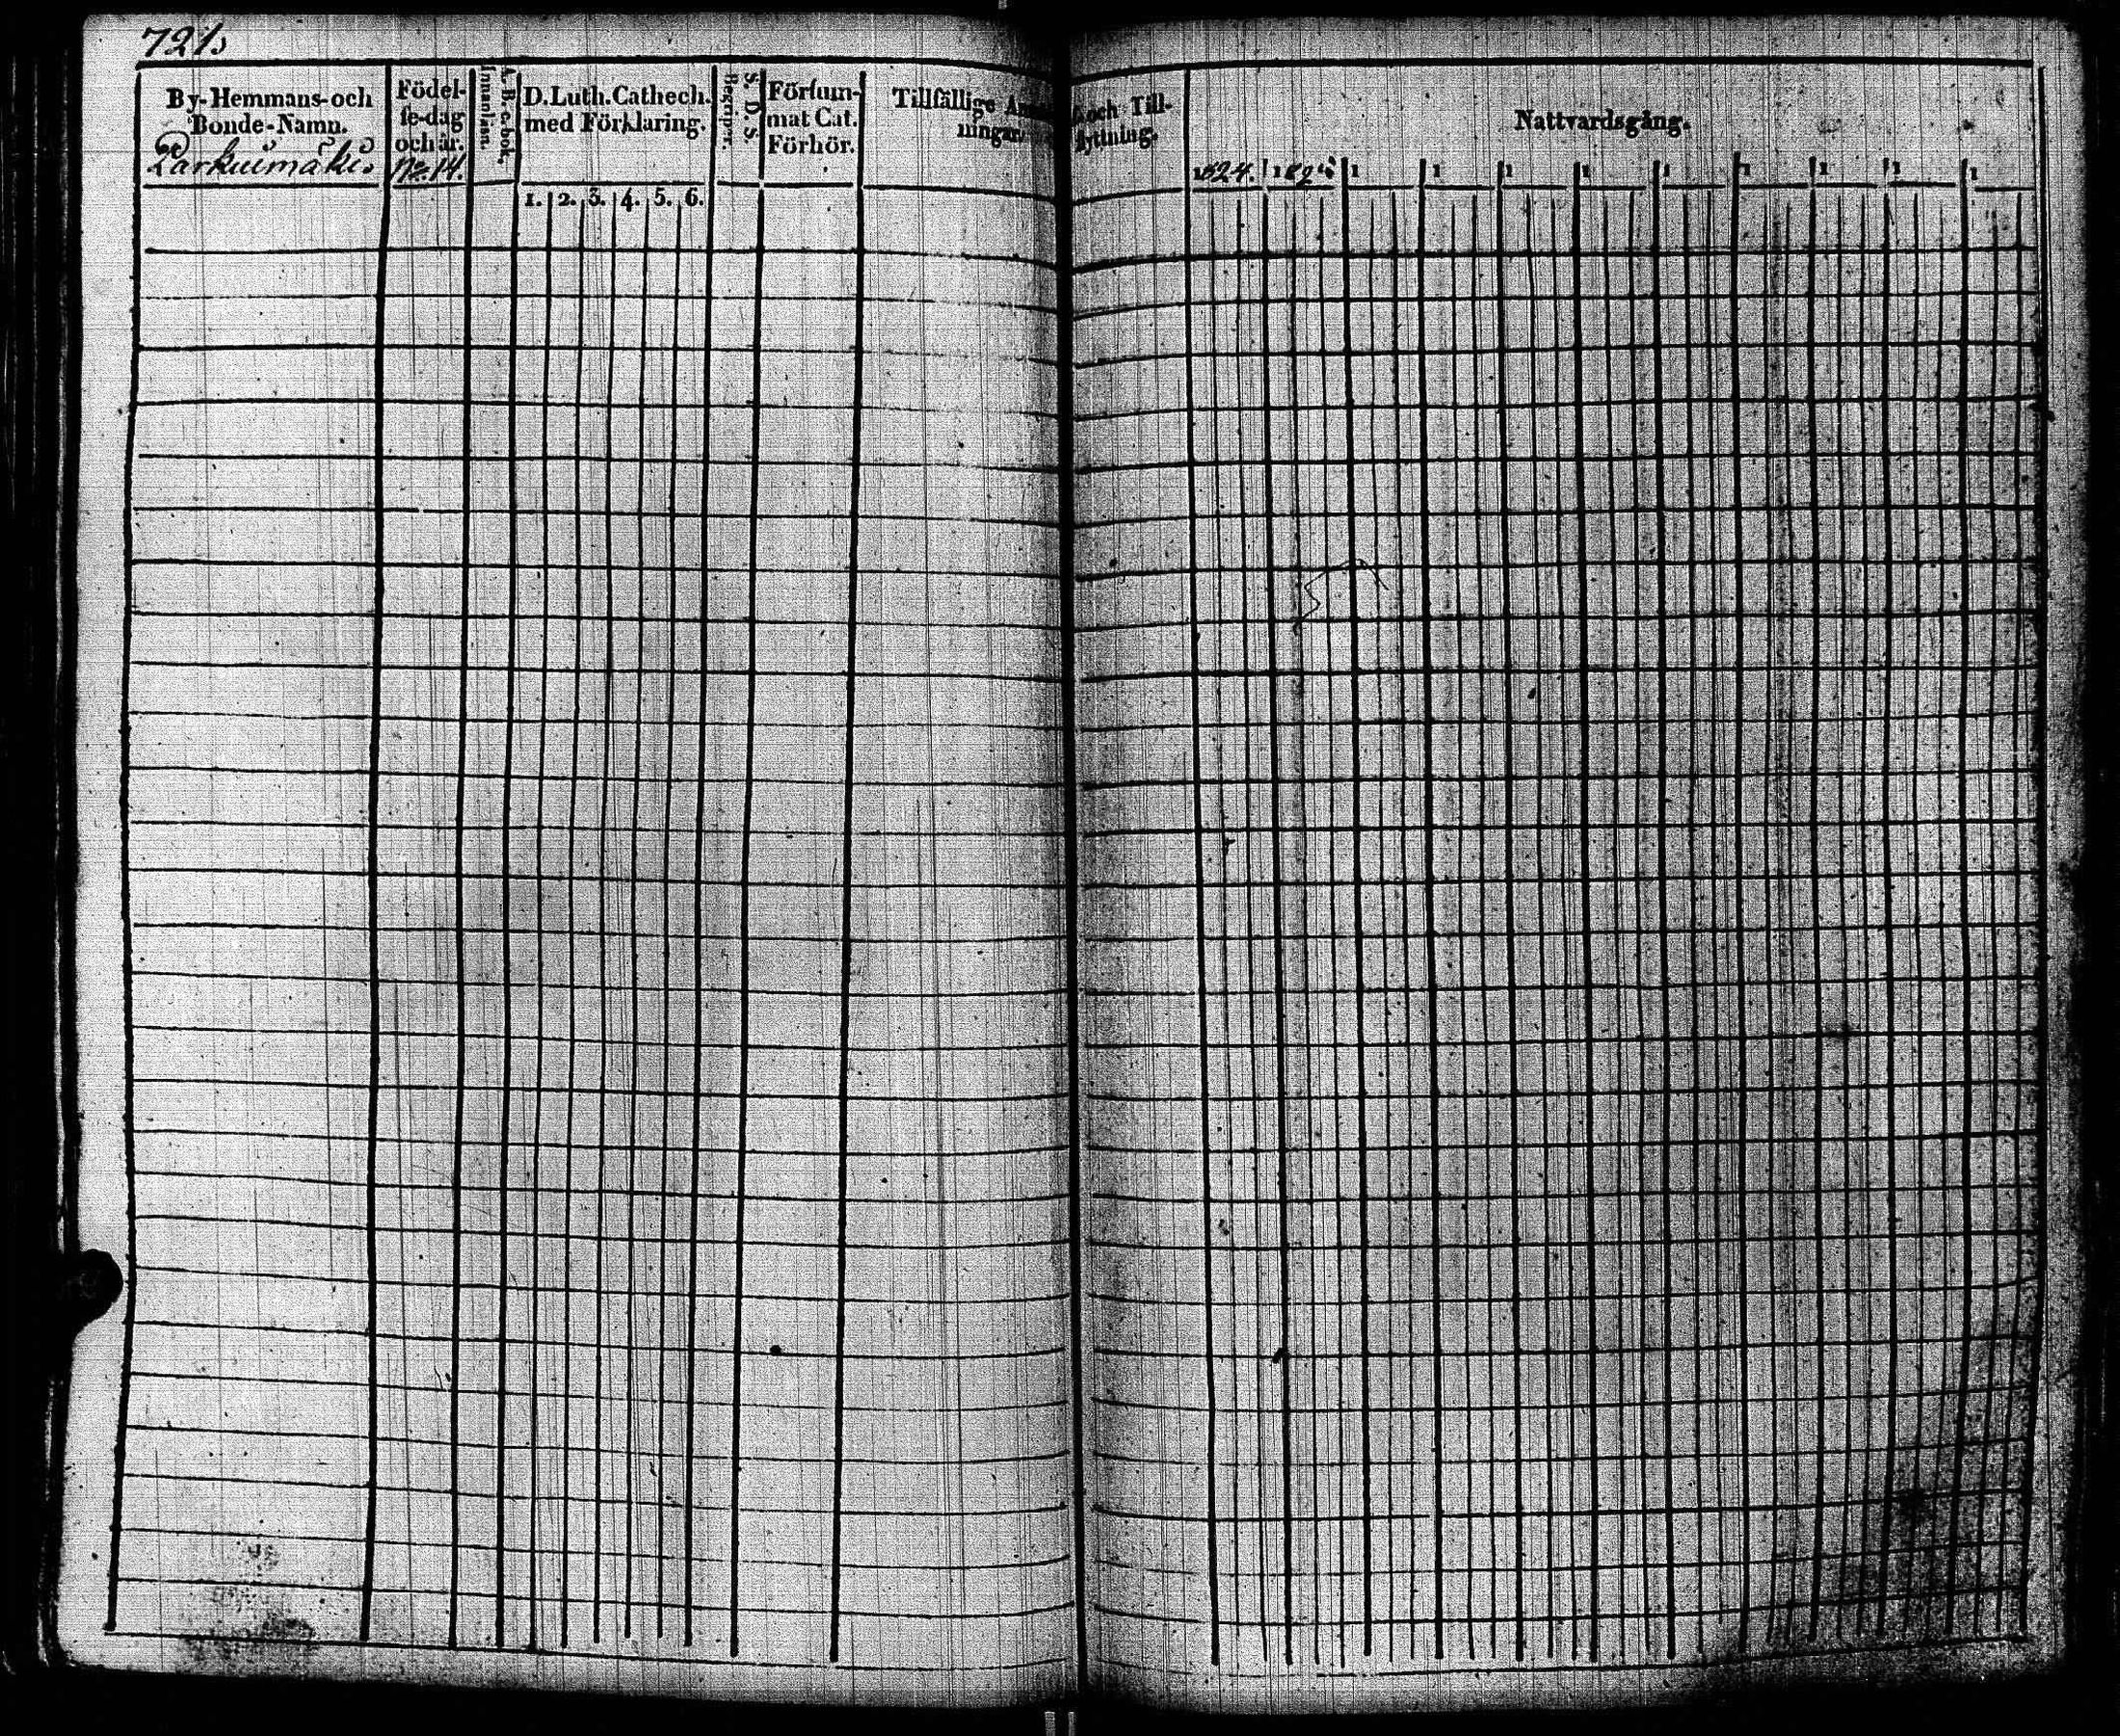 721.
By-Hemmans-och
Bonde-Namn.
Parkuimäki.
Födel-
se-dag
och år.
No. 14.
A. B. c. bok,
Innanläsn.
D. Luth. Cathech.
med Förklaring.
1. 2. 3. 4. 5. 6.
S. D. S.
Begriper.
Försum-
mat Cat.
Förhör.
Tillfällige
ningar.
och Till-
flyttning.
Nattvardsgång.
1824. 182 1 1 1 1 1 1 1 1 1